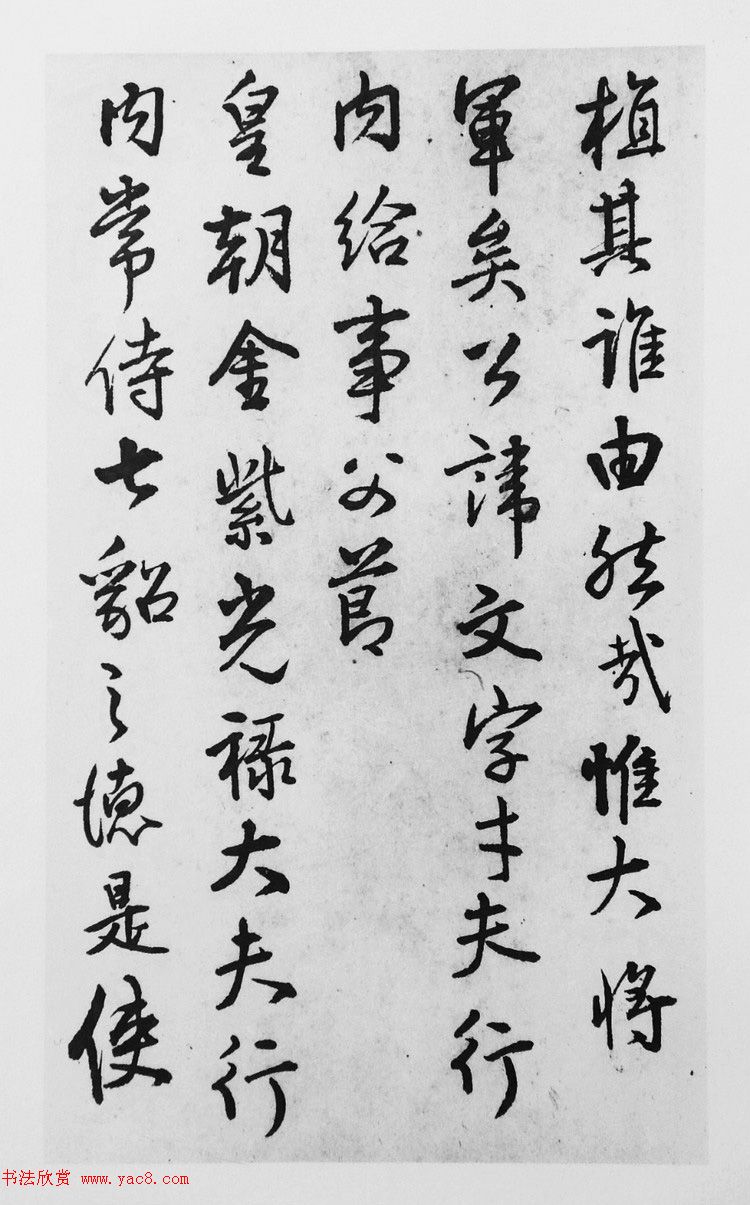 植其誰由然哉惟大將
軍矣公諱文字才夫行
内給事父節
皇朝金紫光禄大夫行
内常侍七貂之德是使
书法欣赏 www.yac8.com